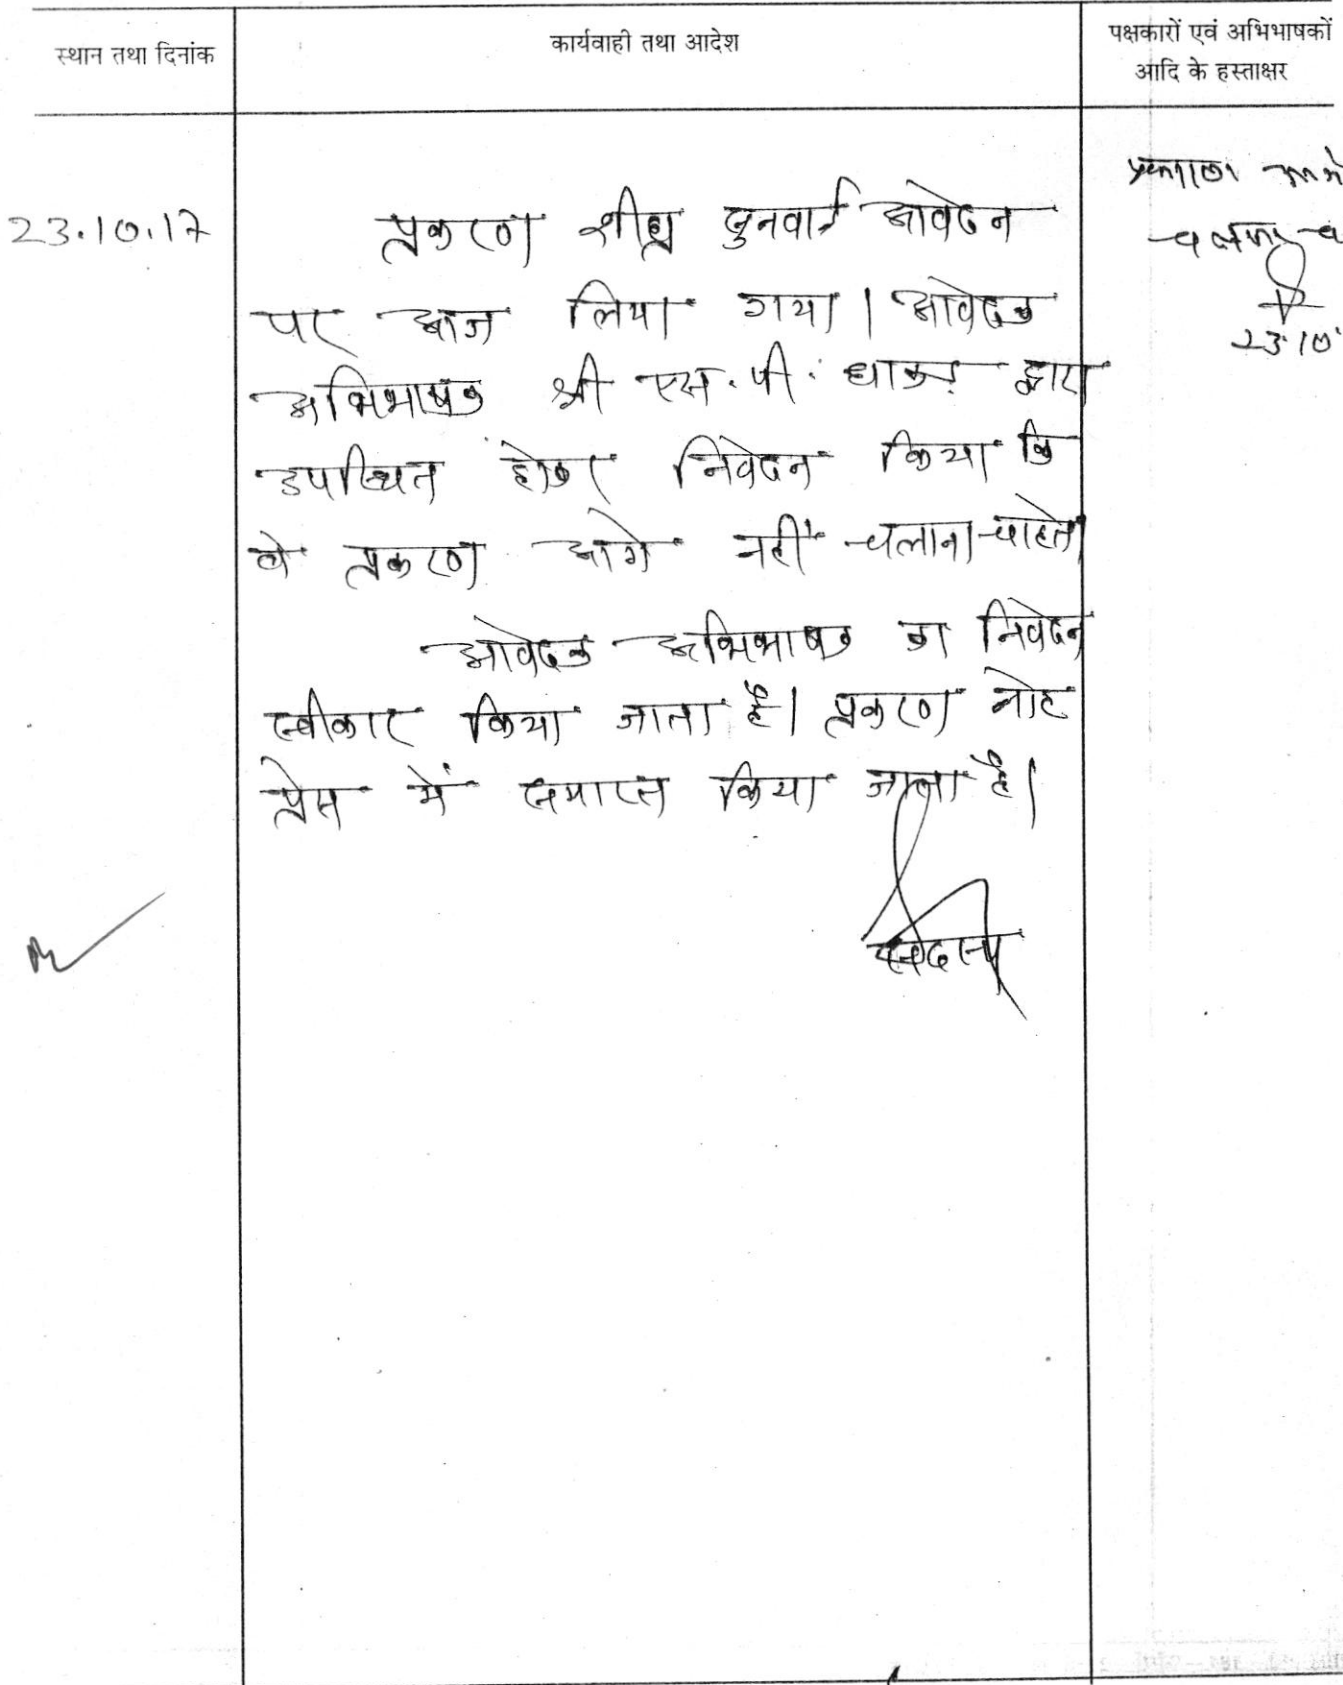 स्थान तथा दिनांक
कार्यवाही तथा आदेश
पक्षकारों एवं अभिभाषकों
आदि के हस्ताक्षर
23.10.17
प्रकरण शीघ्र सुनवाई आवेदन
पर आज लिया गया। आवेदक
अभिभाषक श्री एस.पी. धाकड़ द्वारा
उपस्थित होकर निवेदन किया कि
वे प्रकरण आगे नहीं चलाना चाहते
आवेदक अभिभाषक का निवेदन
स्वीकार किया जाता है। प्रकरण नोट
प्रेस में समाप्त किया जाता है।
सदस्य
प्रकरण आगे
23.10.